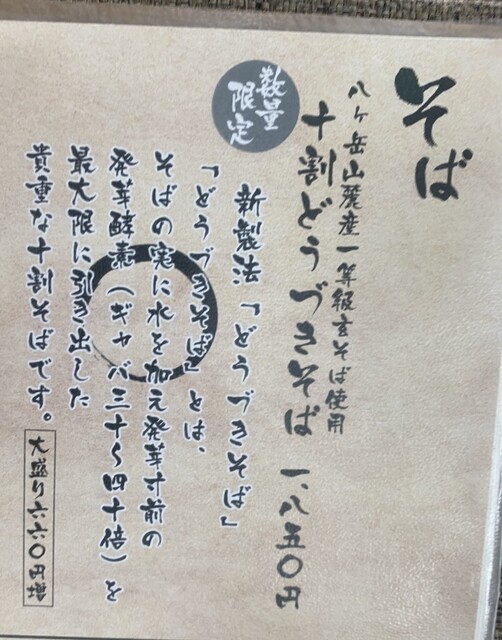 そば
八ヶ岳山麓産一等級玄そば使用
十割どうづきそば 一、八五〇円
数量
限定
新製法「どうづきそば」
「どうづきそば」とは、
そばの実に水を加え発芽寸前の
発芽酵素(ギャバ三十〜四十倍)を
最大限に引き出した
貴重な十割そばです。
大盛り六六〇円増